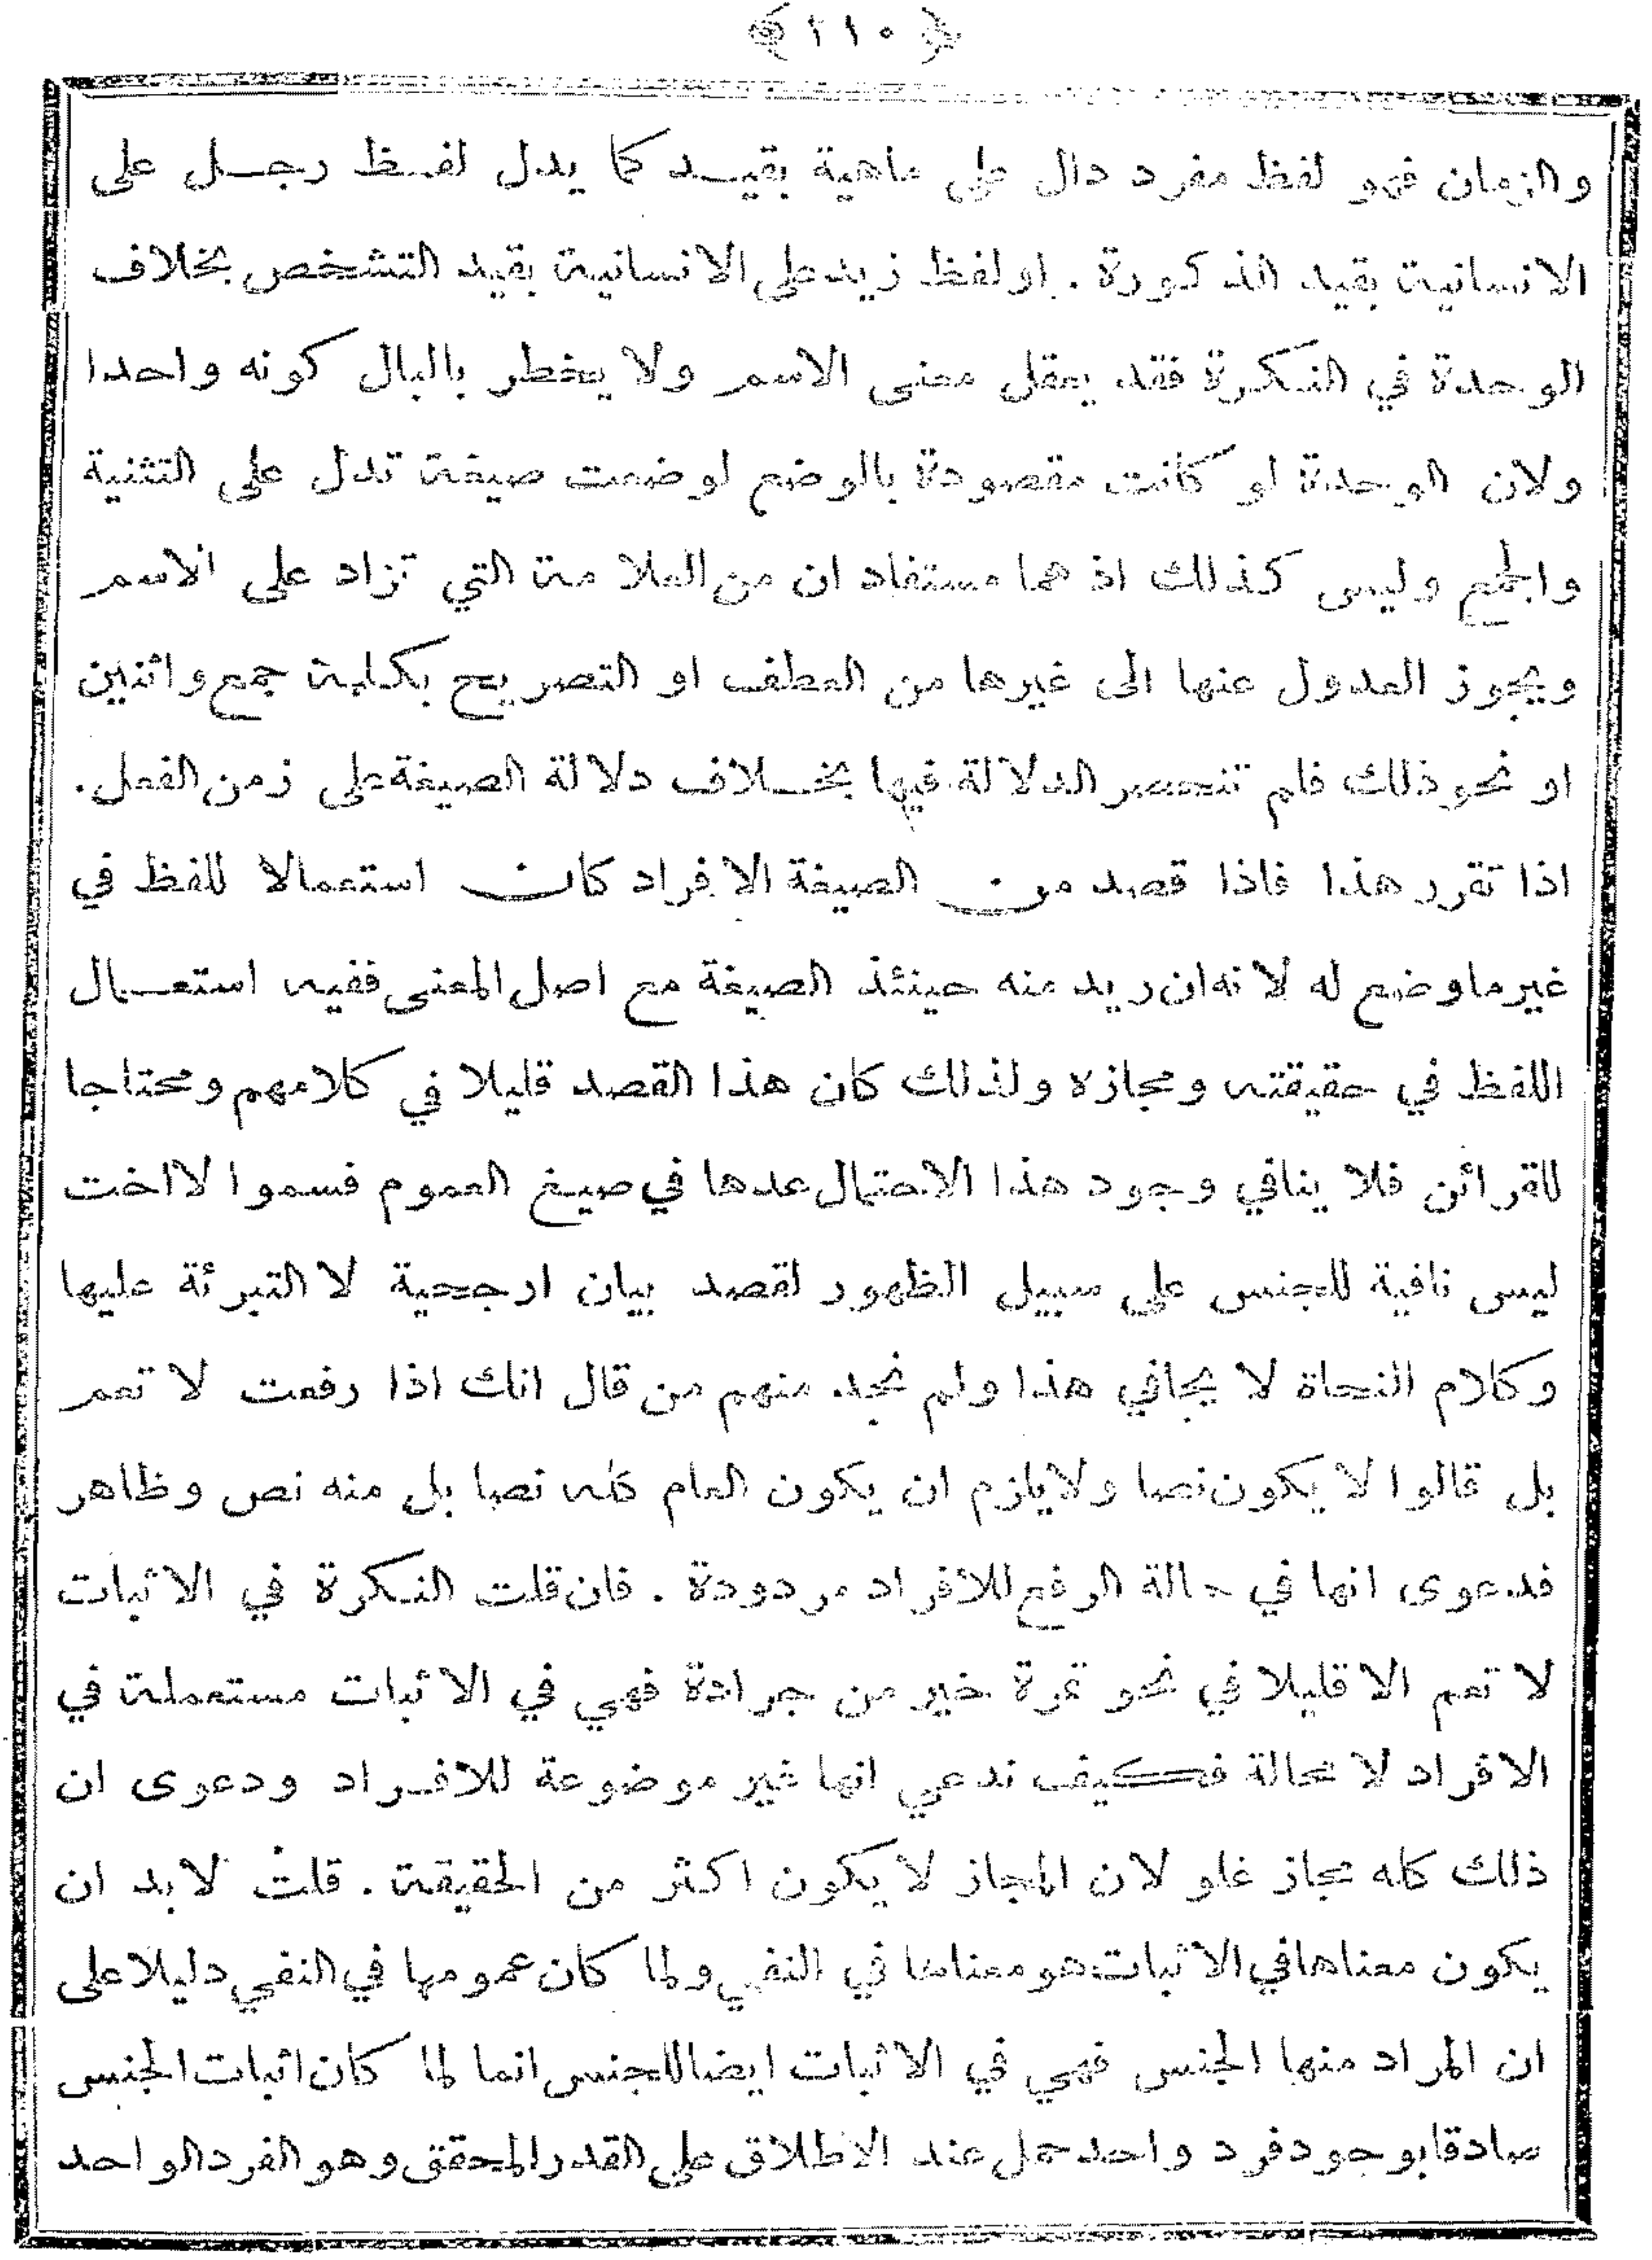 ﴿ ٢١٠ ﴾
والزمان فهو لفظ مفرد دال على ماهية بقيد كما يدل لفظ رجل على
الانسانية بقيد الذكورة . او لفظ زيد على الانسانية بقيد التشخص بخلاف
الوحدة في النكرة فقد يعقل معنى الاسم ولا يخطر بالبال كونه واحدا
ولان الوحدة لو كانت مقصودة بالوضع لوضعت صيغة تدل على التثنية
والجمع وليس كذلك اذ هما مستفادان من العلامة التي تزاد على الاسم
ويجوز العدول عنها الى غيرها من العطف او التصريح بكلمة جمع واثنين
او نحو ذلك فلم تنحصر الدلالة فيها بخلاف دلالة الصيغة على زمن الفعل .
اذا تقرر هذا فاذا قصد من الصيغة الافراد كان استعمالا للفظ في
غير ما وضع له لانه ان ريد منه حينئذ الصيغة مع اصل المعنى ففيه استعمال
اللفظ في حقيقته ومجازه ولذلك كان هذا القصد قليلا في كلامهم ومحتاجا
للقرائن فلا ينافي وجود هذا الاحتمال عدها في صيغ العموم فسموا لا اخت
ليس نافية للجنس على سبيل الظهور لقصد بيان ارجحية لا التبرئة عليها
وكلام النحاة لا يجافي هذا ولم نجد منهم من قال انك اذا رفعت لا تعم
بل قالوا لا يكون نصا ولا يلزم ان يكون العام كله نصا بل منه نص وظاهر
فدعوى انها في حالة الرفع للافراد مردودة . فان قلت النكرة في الاثبات
لا تعم الا قليلا في نحو تمرة خير من جرادة فهي في الاثبات مستعملة في
الافراد لا محالة فكيف ندعي انها غير موضوعة للافراد ودعوى ان
ذلك كله مجاز غلو لان المجاز لا يكون اكثر من الحقيقة . قلت لابد ان
يكون معناها في الاثبات هو معناها في النفي ولما كان عمومها في النفي دليلا على
ان المراد منها الجنس فهي في الاثبات ايضا للجنس انما لما كان اثبات الجنس
صادقا بوجود فرد واحد حمل عند الاطلاق على القدر المحقق وهو الفرد الواحد